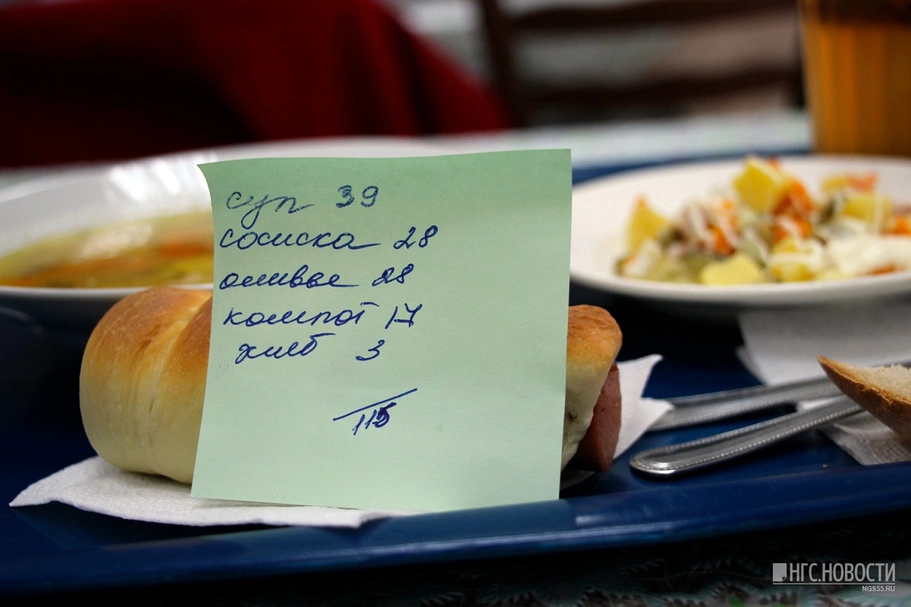 суп 39
сосиска 28
оливье 28
компот 17
хлеб 3
115
НГС.НОВОСТИ
NGS55.RU